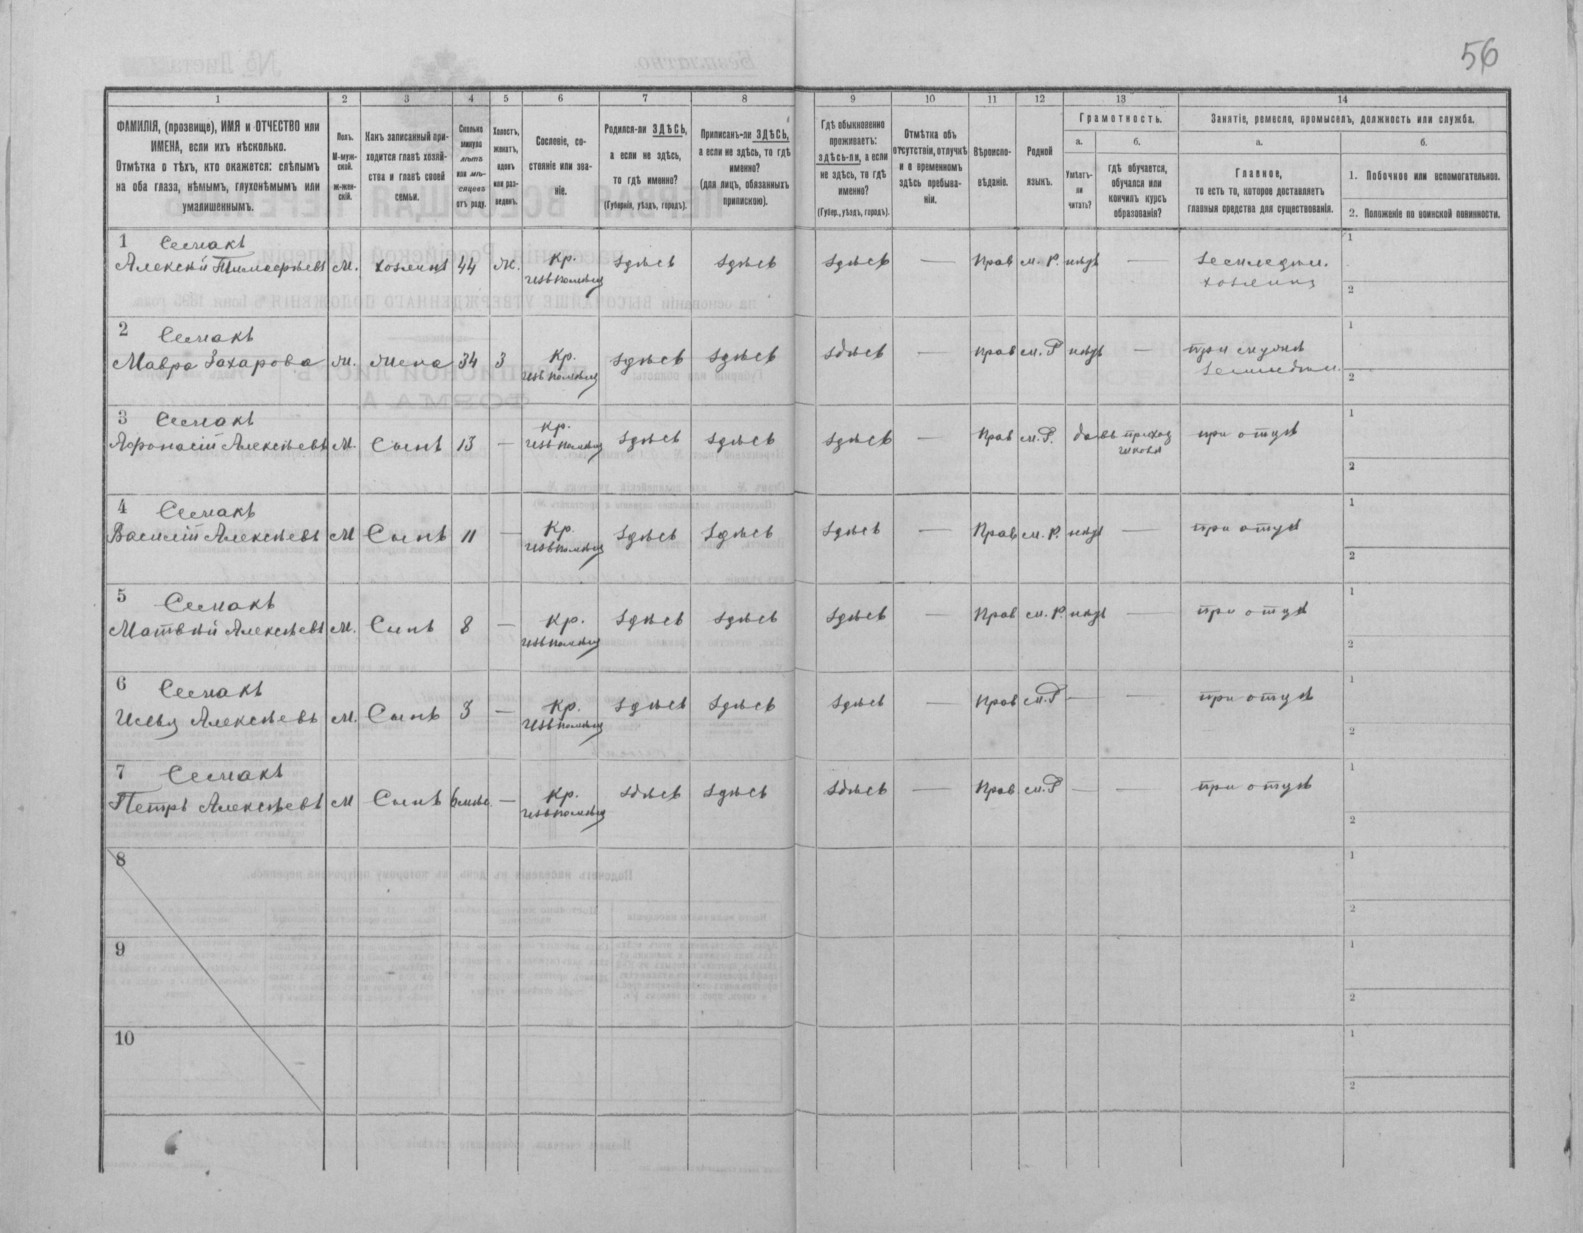 56
1
2
3
4
5
6
7
8
9
10
11
12
13
14
ФАМИЛІЯ, (прозвище), ИМЯ и ОТЧЕСТВО или
ИМЕНА, если ихъ нѣсколько.
Отмѣтка о тѣхъ, кто окажется: слѣпымъ
на оба глаза, нѣмымъ, глухонѣмымъ или
умалишеннымъ.
Полъ.
М-муж-
ской.
ж-жен-
скій.
Какъ записанный при-
ходится главѣ хозяй-
ства и главѣ своей
семьи.
Сколько
минуло
лѣтъ
или мѣ-
сяцевъ
отъ роду.
Холостъ,
женатъ,
вдовъ
или раз-
веденъ.
Сословіе, со-
стояніе или зва-
ніе.
Родился-ли ЗДѢСЬ,
а если не здѣсь,
то гдѣ именно?
(Губернія, уѣздъ, городъ).
Приписанъ-ли ЗДѢСЬ,
а если не здѣсь, то гдѣ
именно?
(для лицъ, обязанныхъ
припискою).
Гдѣ обыкновенно
проживаетъ:
здѣсь-ли, а если
не здѣсь, то гдѣ
именно?
(Губер., уѣздъ, городъ).
Отмѣтка объ
отсутствіи, отлучкѣ
и о временномъ
здѣсь пребыва-
ніи.
Вѣроиспо-
вѣданіе.
Родной
языкъ.
Грамотность.
а.
Умѣетъ-
ли
читать?
б.
гдѣ обучается,
обучался или
кончилъ курсъ
образованія?
Занятіе, ремесло, промыселъ, должность или служба.
а.
Главное,
то есть то, которое доставляетъ
главныя средства для существованія.
б.
1. Побочное или вспомогательное.
2. Положеніе по воинской повинности.
1 Семакъ
Алексѣй Тимофѣевъ М. хозяинъ 44 ж. Кр. здѣсь здѣсь здѣсь — Прав м. Р. нѣтъ — земледѣл. 1
изъ помѣщ хозяинъ 2
2 Семакъ
Мавра Захарова жена 34 З Кр. здѣсь здѣсь здѣсь — Прав м. Р нѣтъ — при мужѣ 1
изъ помѣщ земледѣл. 2
3 Семакъ
Афонасій Алексѣевъ М. Сынъ 13 — Кр. здѣсь здѣсь здѣсь — Прав м. Р. приход при отцѣ 1
изъ помѣщ школа 2
4 Семакъ
Василій Алексѣевъ М Сынъ 11 — Кр. здѣсь здѣсь здѣсь — Прав м. Р. нѣтъ — при отцѣ 1
изъ помѣщ 2
5 Семакъ
Матвѣй Алексѣевъ М. Сынъ 8 — Кр. здѣсь здѣсь здѣсь — Прав м. Р. нѣтъ — при отцѣ 1
изъ помѣщ 2
6 Семакъ
Илья Алексѣевъ М. Сынъ 3 — Кр. здѣсь здѣсь здѣсь — Прав м. Р — — при отцѣ 1
изъ помѣщ 2
7 Семакъ
Петръ Алексѣевъ М Сынъ 6 мѣс. — Кр. здѣсь здѣсь здѣсь — Прав м. Р — — при отцѣ 1
изъ помѣщ 2
8 1
2
9 1
2
10 1
2